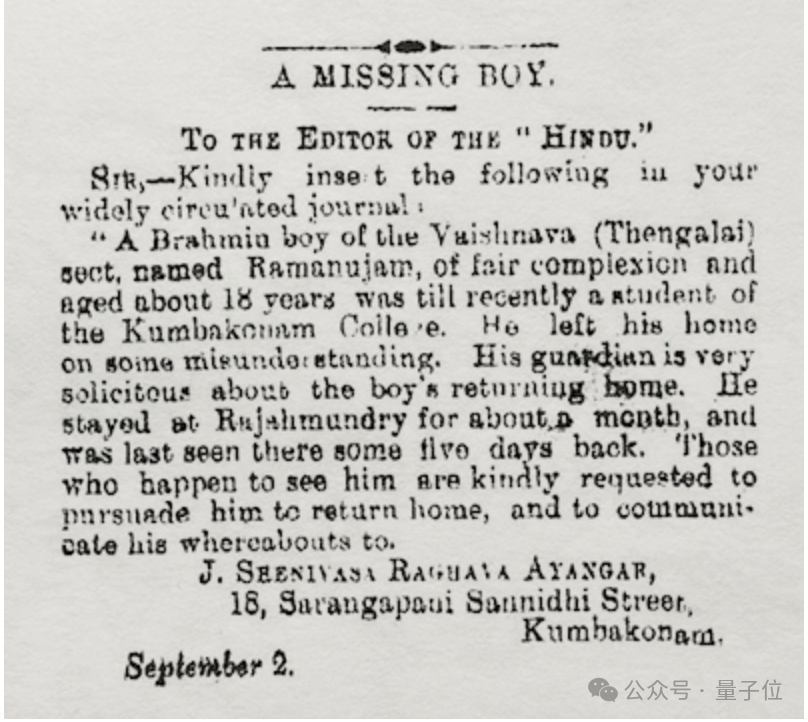 A MISSING BOY.
TO THE EDITOR OF THE "HINDU."
SIR,—Kindly insert the following in your
widely circulated journal:
"A Brahmin boy of the Vaishnava (Thengalai)
sect, named Ramanujam, of fair complexion and
aged about 18 years was till recently a student of
the Kumbakonam College. He left his home
on some misunderstanding. His guardian is very
solicitous about the boy's returning home. He
stayed at Rajahmundry for about a month, and
was last seen there some five days back. Those
who happen to see him are kindly requested to
pursuade him to return home, and to communi-
cate his whereabouts to.
J. SREENIVASA RAGHAVA AYANGAR,
18, Sarangapani Sannidhi Street,
Kumbakonam.
September 2.
公众号 · 量子位